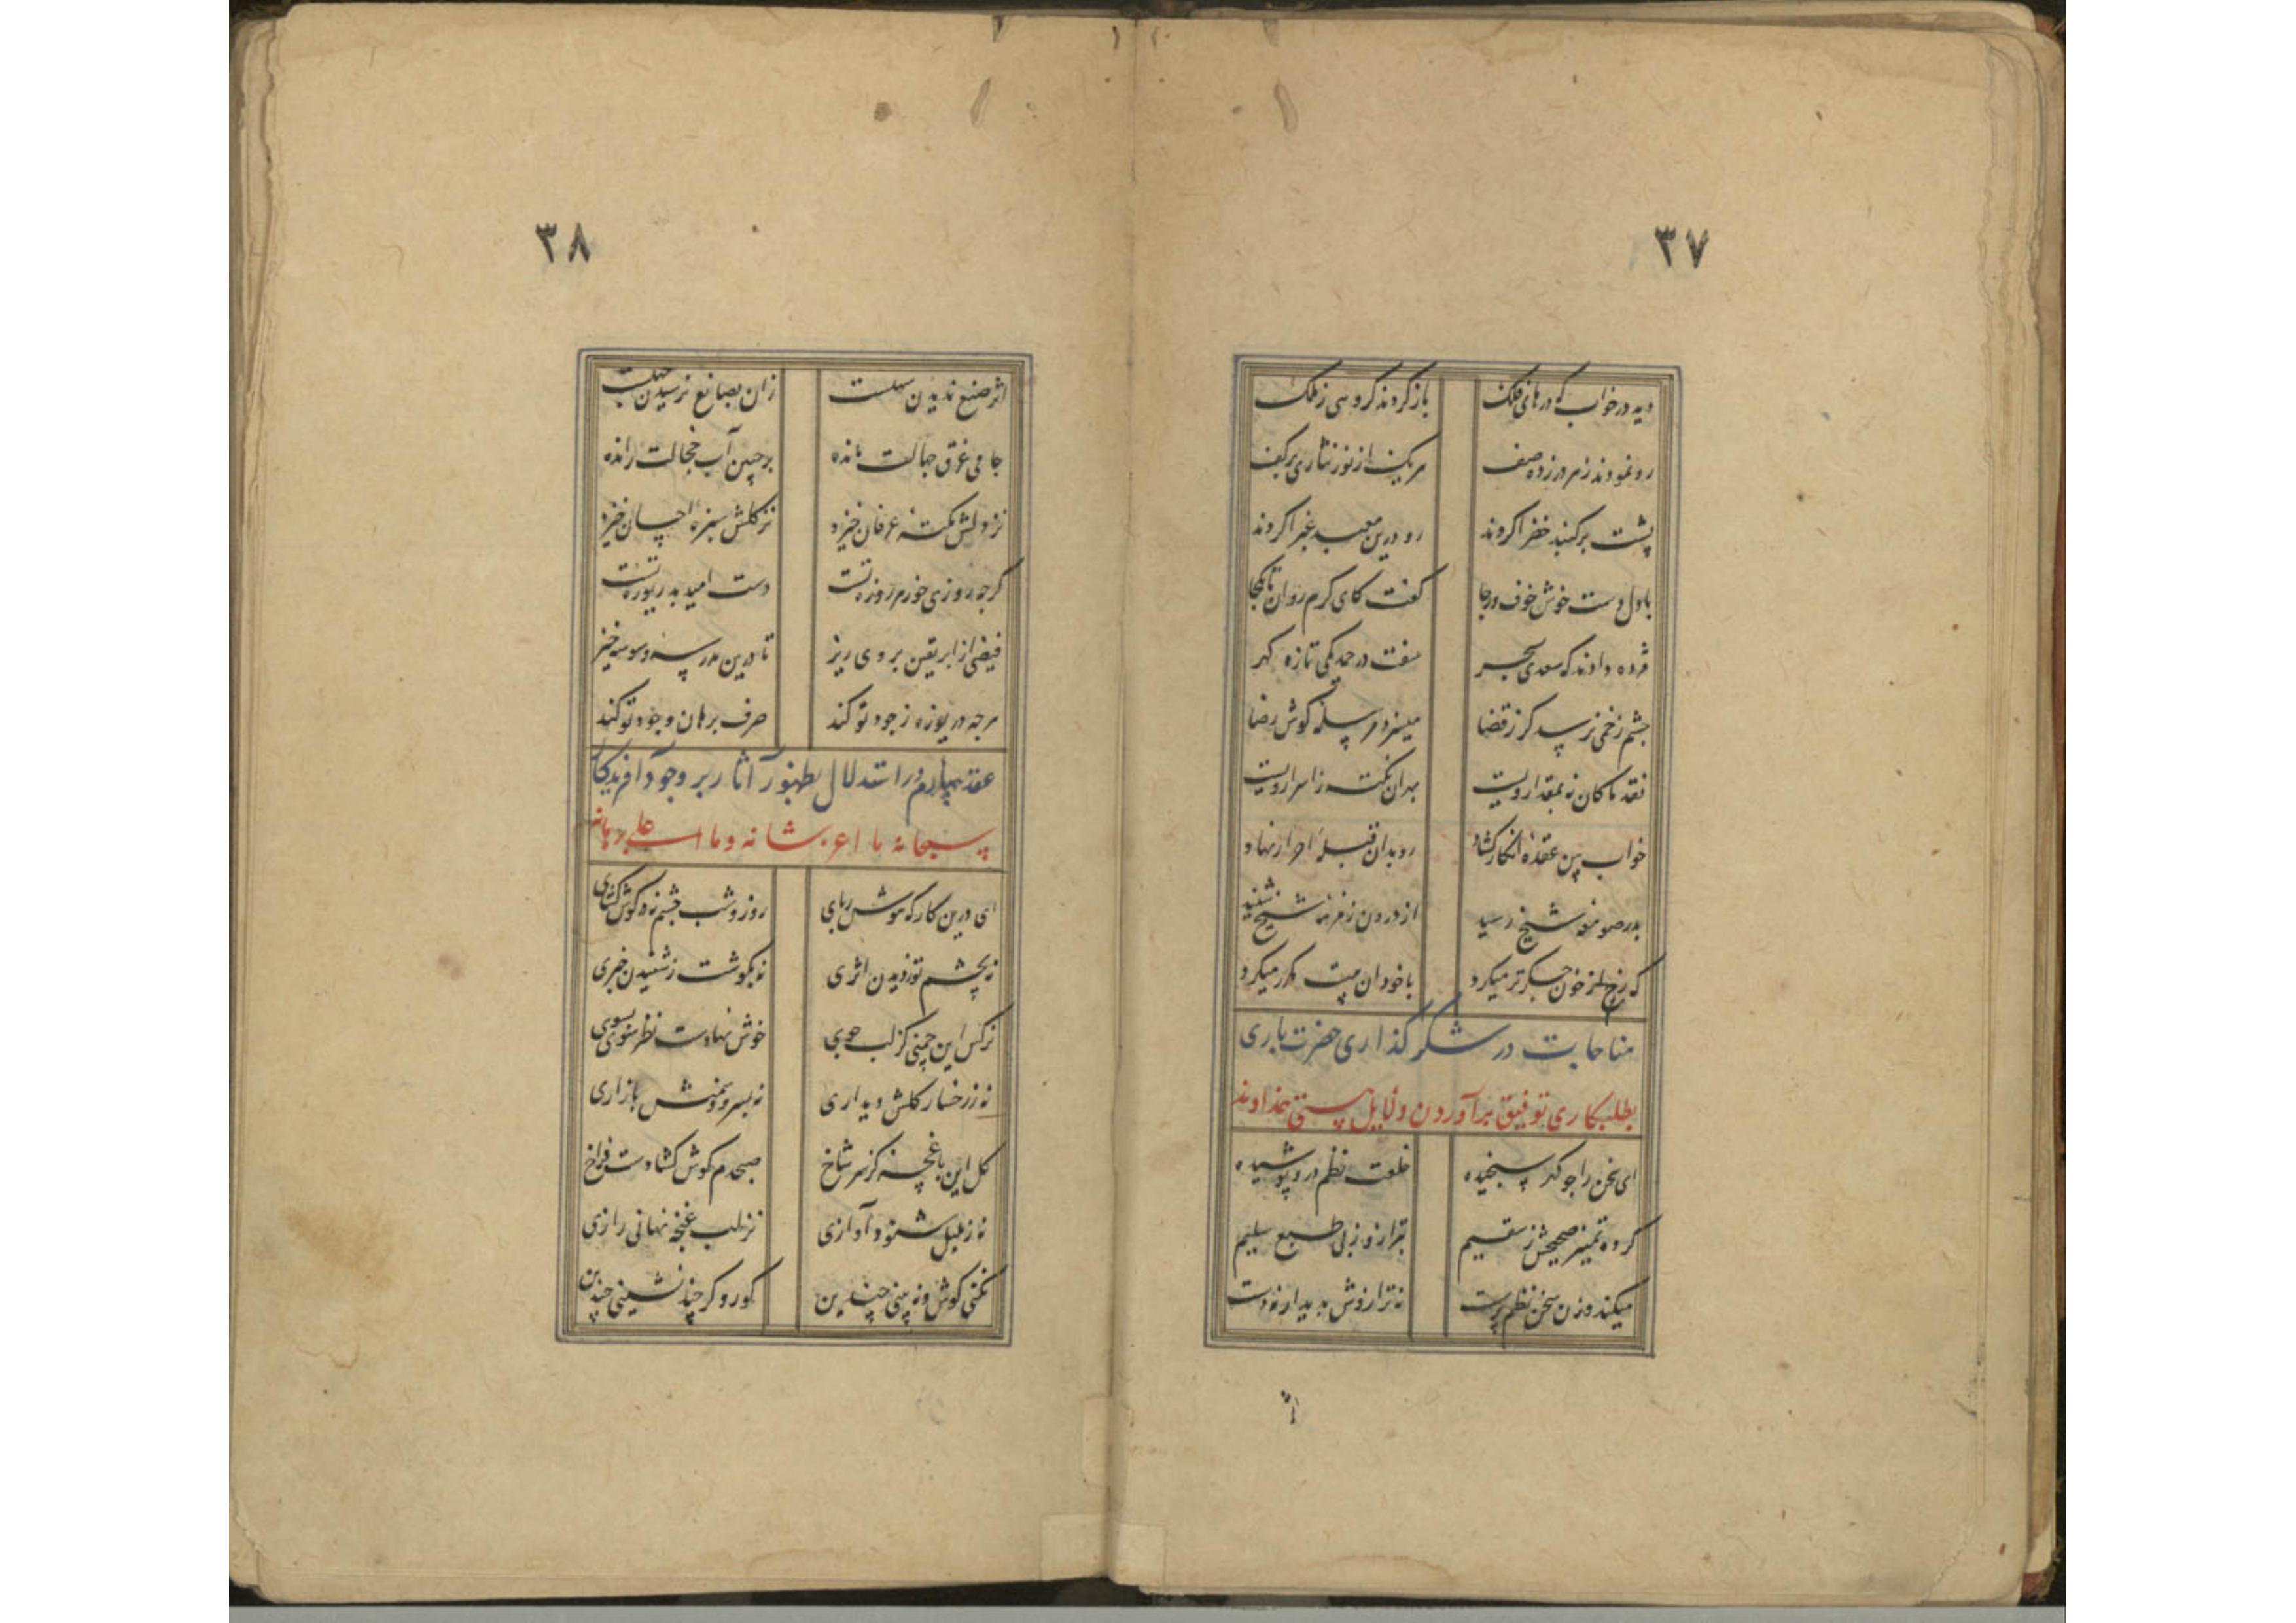 ۳۷
دید در خواب که درهای فلک باز کردند گروهی ز ملک
رو نمودند ز هر در زده صف هر یک از نور نثاری بر کف
پشت بر گنبد خضرا کردند رو درین معبد غبرا کردند
با دل دست خوش خوف و رجا گفت کای گرم روان تا بکجا
مژده دادند که سعدی بسحر سفت در حمد یکی تازه گهر
چشم زخمی نرسد گر ز قضا میسزد مرسله گوش رضا
نقد ما کان نه بمقدار ویست بهر آن نکته ز اسرار ویست
خواب بین عقده انکار گشاد رو بدان قبله احرار نهاد
بدر صومعه شیخ رسید از درون زمزمه شیخ شنید
که رخ از خون جگر تر میکرد با خود آن بیت مکرر میکرد
مناجات در شکر گذاری حضرت باری
بطلبکاری توفیق برآوردن دلایل هستی خداوند
ای سخن را چو گهر سنجیده خلعت نظم درو پوشیده
کرده تمییز صحیحش ز سقیم بترازو زنی طبع سلیم
میکند وزن سخن نظم پرست نه ترازوش پدیدار نه دست
اثر
۳۸
اثر صنع ندیدن سهلست زان بصانع نرسیدن جهلست
جامی غرق جهالت مانده بر جبین آب خجالت رانده
نز دلش نکته عرفان خیزد نز گلش سبزه احسان خیزد
گرچه روزی خور هر روزه تست دست امید بدریوزه تست
فیضی از ابر یقین بر وی ریز تا درین مدرسه وسوسه خیز
هرچه دریوزه ز جود تو کند صرف برهان وجود تو کند
عقد چهارم در استدلال بظهور آثار بر وجود آفریدگار
سبحانه ما اعز شانه و ما اجلی برهانه
ای درین کارگه هوش ربای روز و شب چشم نه و گوش گشای
نه بچشم تو ز دیدن اثری نه بگوشت ز شنیدن خبری
نرگس این چمنی کز لب جوی خوش نهادست نظر سوی بسوی
نه ز رخسار گلش دیداری نه بسرو و سمنش بازاری
گل این باغچه کز سر شاخ صبحدم گوش گشادست فراخ
نه ز بلبل شنود آوازی نز لب غنچه نهانی رازی
نکنی گوش و نه بینی چندین کور و کر چند نشینی چندین